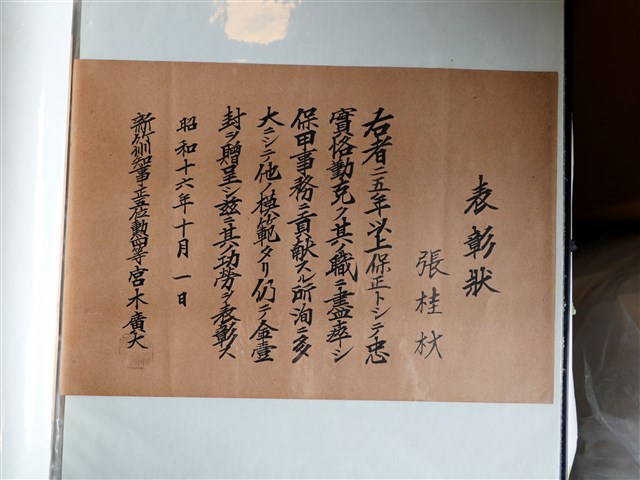 表彰狀
張桂材
右者二五年以上保正トシテ忠
實恪勤克ク其ノ職ニ盡瘁シ
保甲事務ニ貢獻スル所洵ニ多
大ニシテ他ノ模範タリ仍テ金壹
封ヲ贈呈シ茲ニ其功勞ヲ表彰ス
昭和十六年十月一日
新竹州知事正五位勳四等宮木廣大